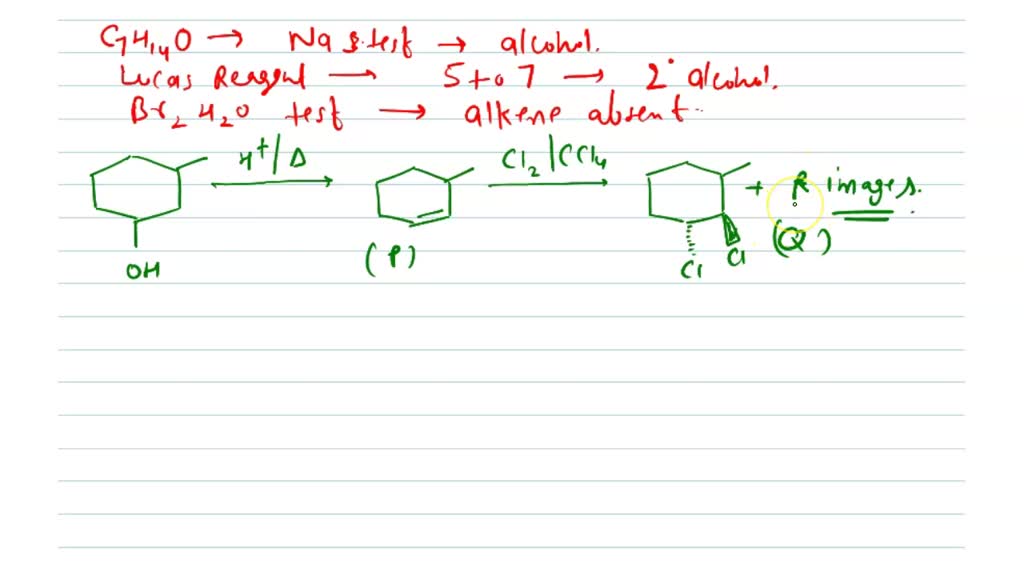 C7H14O → Na s.test → alcohol.
Lucas Reagent → 5 to 7 → 2° alcohol.
Br2 H2O test → alkene absent.
H+/Δ Cl2/CCl4
+ R images.
OH (P) Cl Cl (Q)